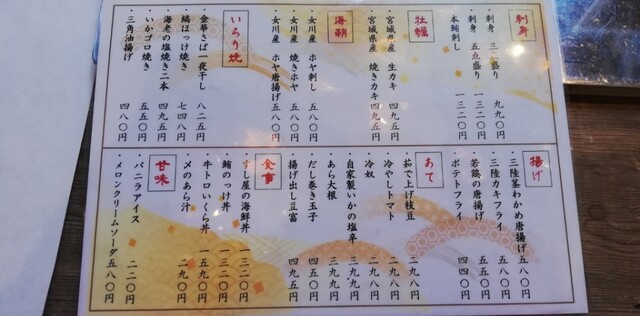 刺身
・刺身 三点盛り 九九〇円
・刺身 五点盛り 一三二〇円
・本鮪刺し 一三二〇円
牡蠣
・宮城県産 生カキ 四九五円
・宮城県産 焼きカキ 四九五円
海鞘
・女川産 ホヤ刺し 五八〇円
・女川産 焼きホヤ 五八〇円
・女川産 ホヤ唐揚げ 五八〇円
いろり焼
・金華さば一夜干し 八二五円
・縞ほっけ焼き 七四八円
・海老の塩焼き二本 四九五円
・いかゴロ焼き 五五〇円
・三角油揚げ 四八〇円
揚げ
・三陸茎わかめ唐揚げ 五八〇円
・三陸カキフライ 五五〇円
・若鶏の唐揚げ 五五〇円
・ポテトフライ 四四〇円
あて
・茹で上げ枝豆 二九八円
・冷やしトマト 二九八円
・冷奴 二九八円
・自家製いかの塩辛 三九九円
・あら大根 二九九円
・だし巻き玉子 四五〇円
・揚げ出し豆富 四九五円
食事
・すし屋の海鮮丼 一三二〇円
・鮪のっけ丼 一三二〇円
・牛トロいくら丼 一五九〇円
・〆のあら汁 二九〇円
甘味
・バニラアイス 二二〇円
・メロンクリームソーダ 五八〇円